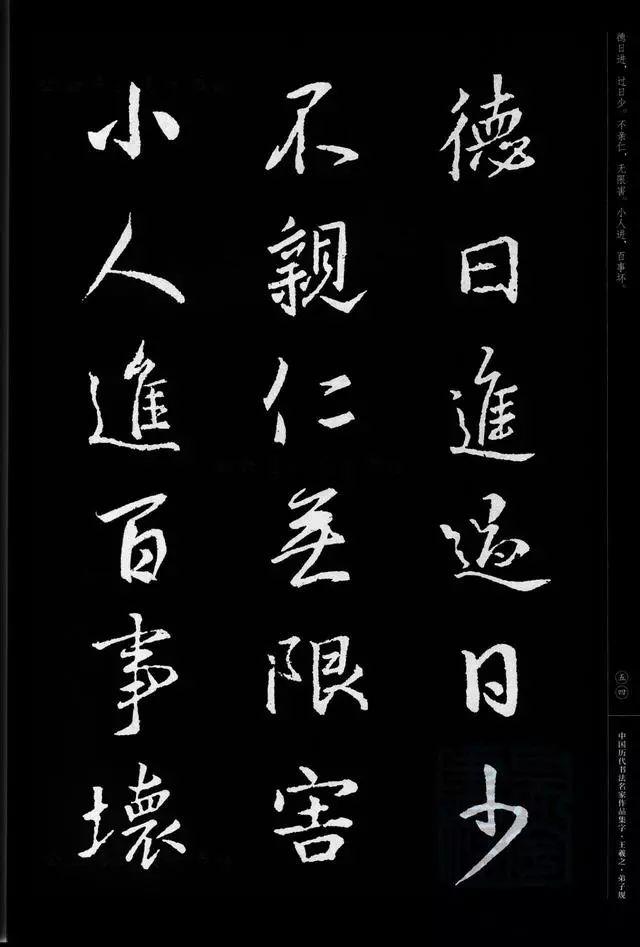 德日進過日少
不親仁無限害
小人進百事壞
德日进，过日少。不亲仁，无限害。小人进，百事坏。
五四
中国历代书法名家作品集字·王羲之·弟子规